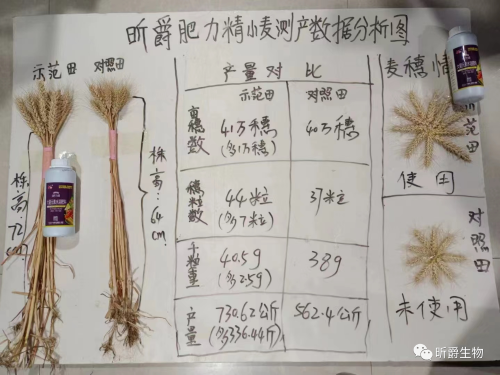 昕爵肥力精小麦测产数据分析图
示范田 对照田
株高72cm
株高:64cm
产量对比
示范田 对照田
亩穗数 41万穗 40万穗
(多1万穗)
穗粒数 44粒 37粒
(多7粒)
千粒重 40.5g 38g
(多2.5g)
产量 730.62公斤 562.4公斤
(多336.44斤)
麦穗情
示范田
使用
对照田
未使用
昕爵生物